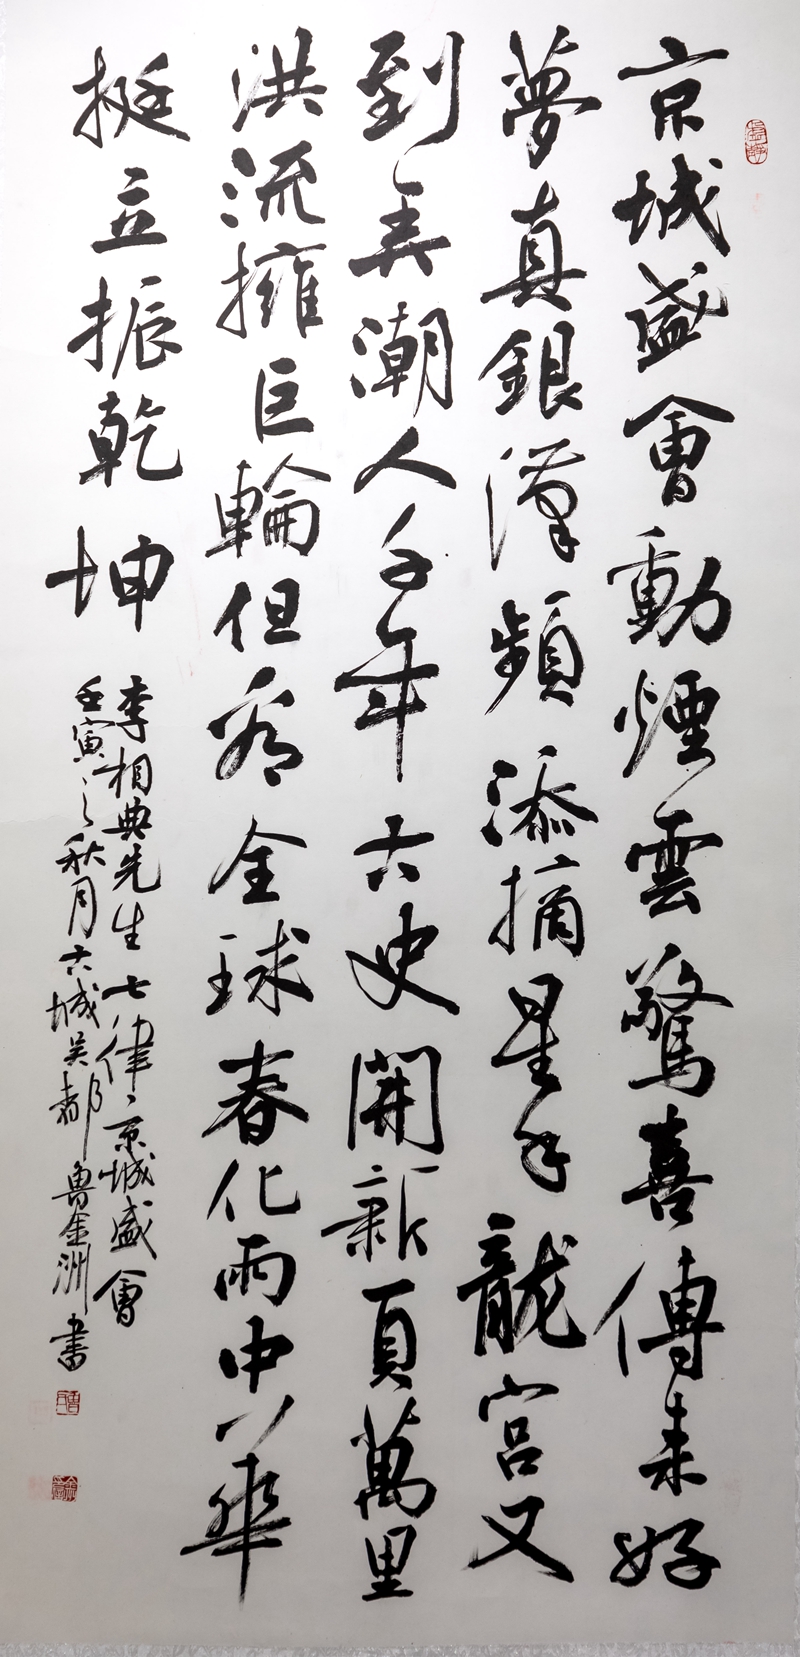 京城盛會動煙雲驚喜傳來好
夢真銀漢頻添摘星手龍宮又
到弄潮人千年古史開新頁萬里
洪流擁巨輪但看全球春化雨中華
挺立振乾坤
李相典先生七律京城盛會
壬寅之秋月古城吴都魯金洲書